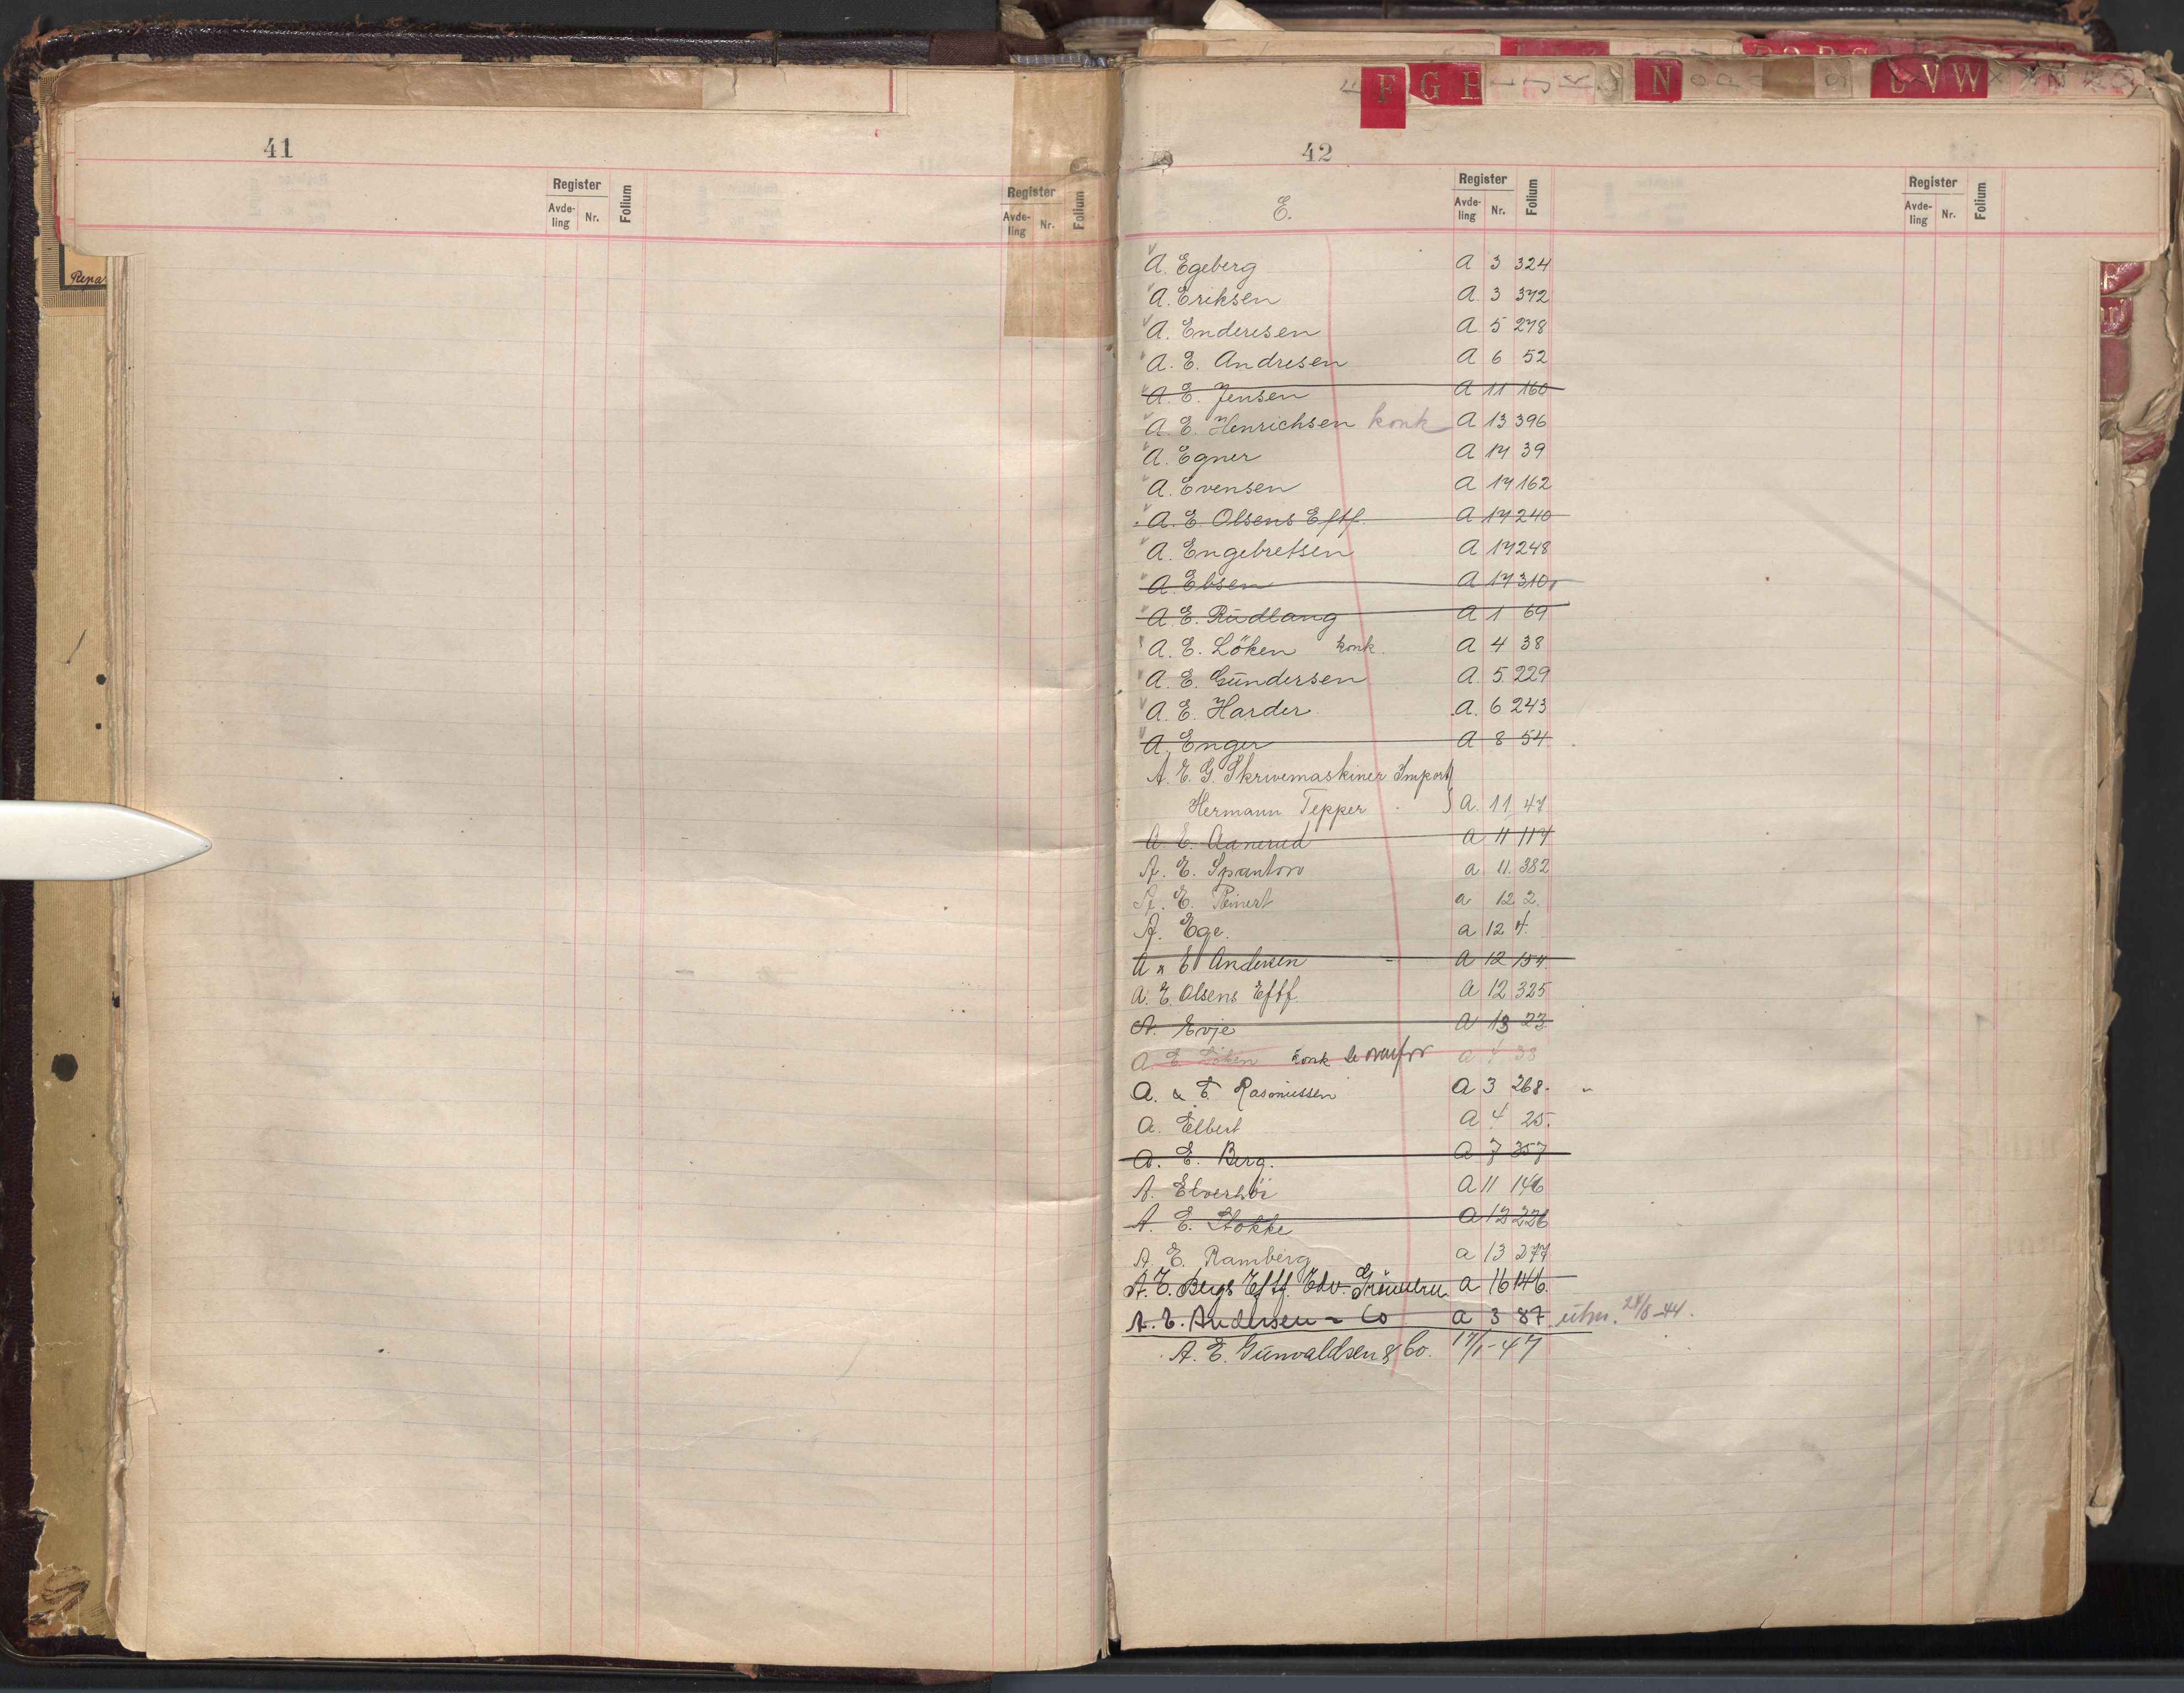 41
Register
Avde-
ling
Nr.
Folium
Register
Avde-
ling
Nr.
Folium
Repa
F G H
N
V W
42
E.
Register
Avde-
ling
Nr.
Folium
Register
Avde-
ling
Nr.
Folium
A. Egeberg A 3 324
A. Eriksen A. 3 372
A. Enderesen A 5 278
A. E. Andresen A 6 52
A. E. Jensen A 11 160
A. E. Henrichsen konk A 13 396
A. Egner A 14 39
A. Evensen A 14 162
A. E. Olsens Eftf. A 14 240
A. Engebretsen A 14 248
A. Ebsen A 14 310
A. E. Rudlang A 1 69
A. E. Löken konk. A 4 38
A. E. Gundersen A. 5 229
A. E. Harder A. 6 243
A. Enger A 8 54
A. E. G. Skrivemaskiner Import
Hermann Tepper } A. 11 47
A. E. Aanerud A 11 117
A. E. Spanton a 11. 382
A. E. Reinert a 12 2.
A. Ege. a 12 4.
A & E Andersen A 12 154
A. E. Olsens Eftf. A 12 325
A. Evje A 13 23
A. E. Löken konk se ovenfor a 4 38
A. & E. Rasmussen A 3 268.
A. Elbert A 4 25.
A. E. Berg. A 7 357
A. Elverhöi A 11 146
A. E. Stokke A 12 226
A. E. Ramberg a 13 277
A. E. Bergs Eftf. Edv. a 16 146.
A. E. Andersen & Co a 3 87 28/8-44.
A. E. Gunvaldsen & Co. 17/1-47